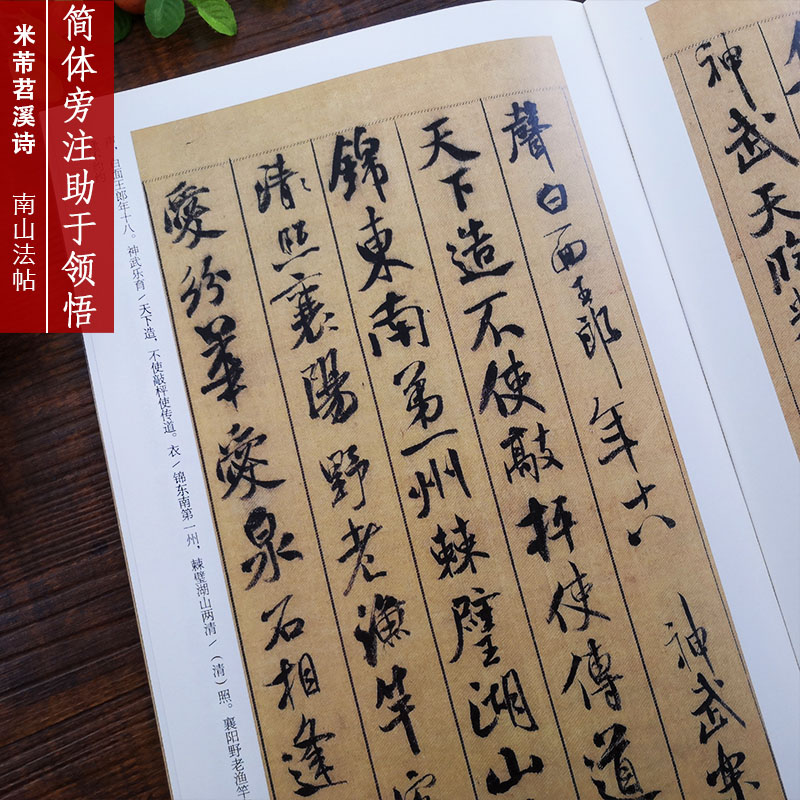 简体旁注助于领悟
米芾苕溪诗 南山法帖
神武天臨
聲白面王郎年十八 神武樂
天下造不使敲枰使傳道
錦東南第一州棘璧湖山
清照襄陽野老漁竿
愛紛華愛泉石相逢
白面王郎年十八。神武乐育/天下造，不使敲枰使传道。衣/锦东南第一州，棘璧湖山两清/（清）照。襄阳野老渔竿